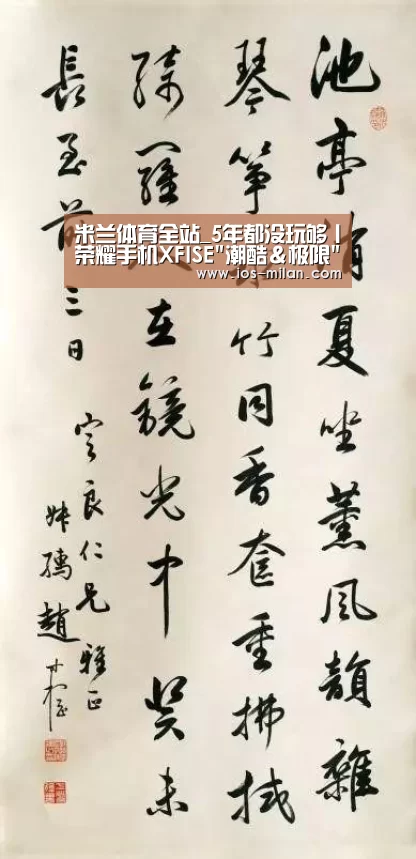 池亭消夏坐薰風韻雜
琴箏竹同香奩重拂拭
綺羅人在鏡光中癸未
長至前三日
定良仁兄雅正
叔孺趙時棡
米兰体育全站_5年都没玩够丨
荣耀手机XFISE"潮酷＆极限"
www.jos-milan.com